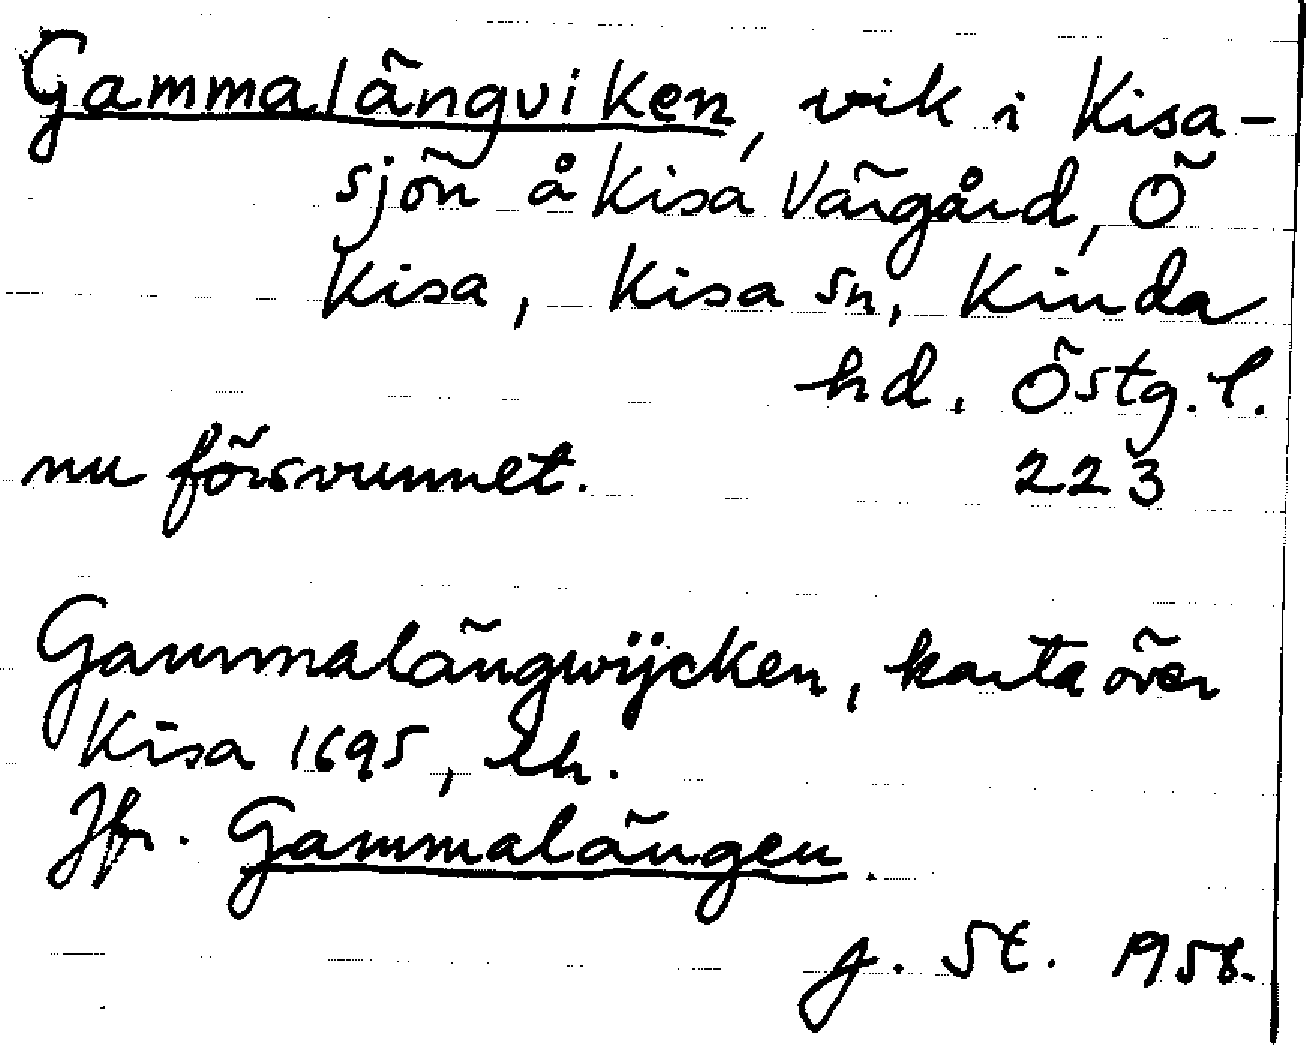 Gammalängviken, vik i Kisa-
sjön å Kisa Värgård, Ö
Kisa, Kisa sn, Kinda
hd. Östg. l.
nu försvunnet. 223
Gammalängwijcken, karta över
Kisa 1695, lh.
Jfr. Gammalängen.
J. St. 1958.